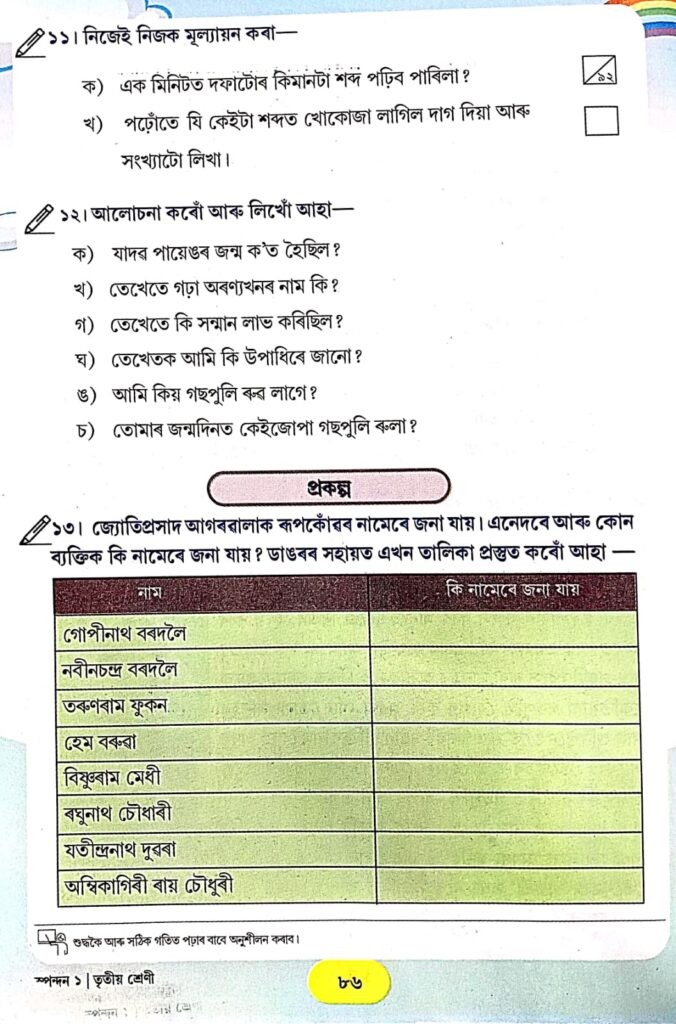 ১১। নিজেই নিজক মূল্যায়ন কৰা—
ক) এক মিনিটত দফাটোৰ কিমানটা শব্দ পঢ়িব পাৰিলা?
৯২
খ) পঢ়োঁতে যি কেইটা শব্দত খোকোজা লাগিল দাগ দিয়া আৰু
সংখ্যাটো লিখা।
১২। আলোচনা কৰোঁ আৰু লিখোঁ আহা—
ক) যাদৱ পায়েঙৰ জন্ম ক'ত হৈছিল?
খ) তেখেতে গঢ়া অৰণ্যখনৰ নাম কি?
গ) তেখেতে কি সন্মান লাভ কৰিছিল?
ঘ) তেখেতক আমি কি উপাধিৰে জানো?
ঙ) আমি কিয় গছপুলি ৰুব লাগে?
চ) তোমাৰ জন্মদিনত কেইজোপা গছপুলি ৰুলা?
প্ৰকল্প
১৩। জ্যোতিপ্ৰসাদ আগৰৱালাক ৰূপকোঁৱৰ নামেৰে জনা যায়। এনেদৰে আৰু কোন
ব্যক্তিক কি নামেৰে জনা যায়? ডাঙৰৰ সহায়ত এখন তালিকা প্ৰস্তুত কৰোঁ আহা —
নাম কি নামেৰে জনা যায়
গোপীনাথ বৰদলৈ
নবীনচন্দ্ৰ বৰদলৈ
তৰুণৰাম ফুকন
হেম বৰুৱা
বিষ্ণুৰাম মেধী
ৰঘুনাথ চৌধাৰী
যতীন্দ্ৰনাথ দুৱৰা
অম্বিকাগিৰী ৰায় চৌধুৰী
শুদ্ধকৈ আৰু সঠিক গতিত পঢ়াৰ বাবে অনুশীলন কৰাব।
স্পন্দন ১ | তৃতীয় শ্ৰেণী
৮৬